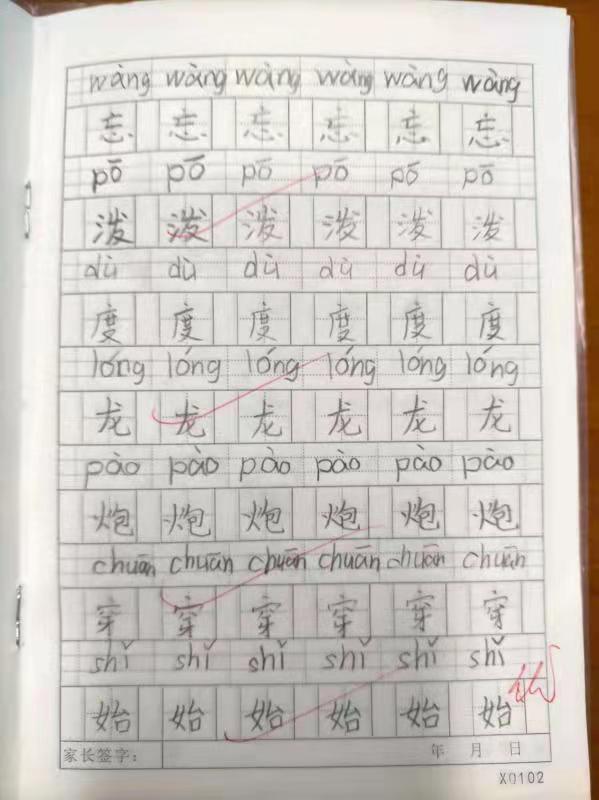 wàng wàng wàng wàng wàng wàng
忘 忘 忘 忘 忘 忘
pō pō pō pō pō pō
泼 泼 泼 泼 泼 泼
dù dù dù dù dù dù
度 度 度 度 度 度
lóng lóng lóng lóng lóng lóng
龙 龙 龙 龙 龙 龙
pào pào pào pào pào pào
炮 炮 炮 炮 炮 炮
chuān chuān chuān chuān chuān chuān
穿 穿 穿 穿 穿 穿
shǐ shǐ shǐ shǐ shǐ shǐ
始 始 始 始 始 始
家长签字： 年 月 日
X0102